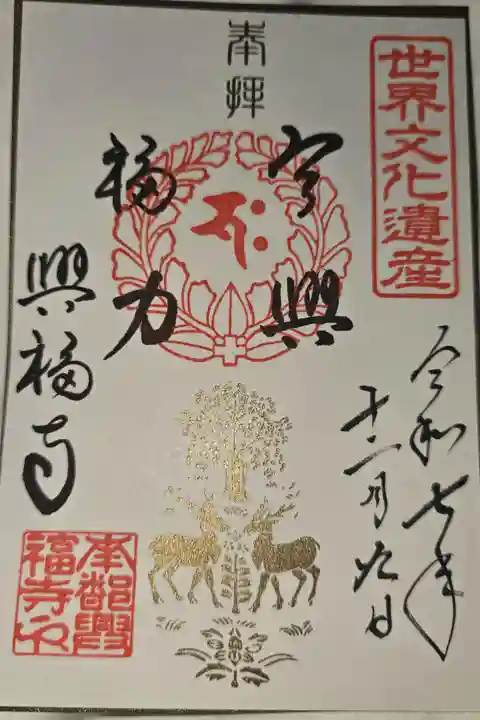 奉拝
世界文化遺産
令和七年
十二月九日
令興
福力
興福寺
南都興
福寺印